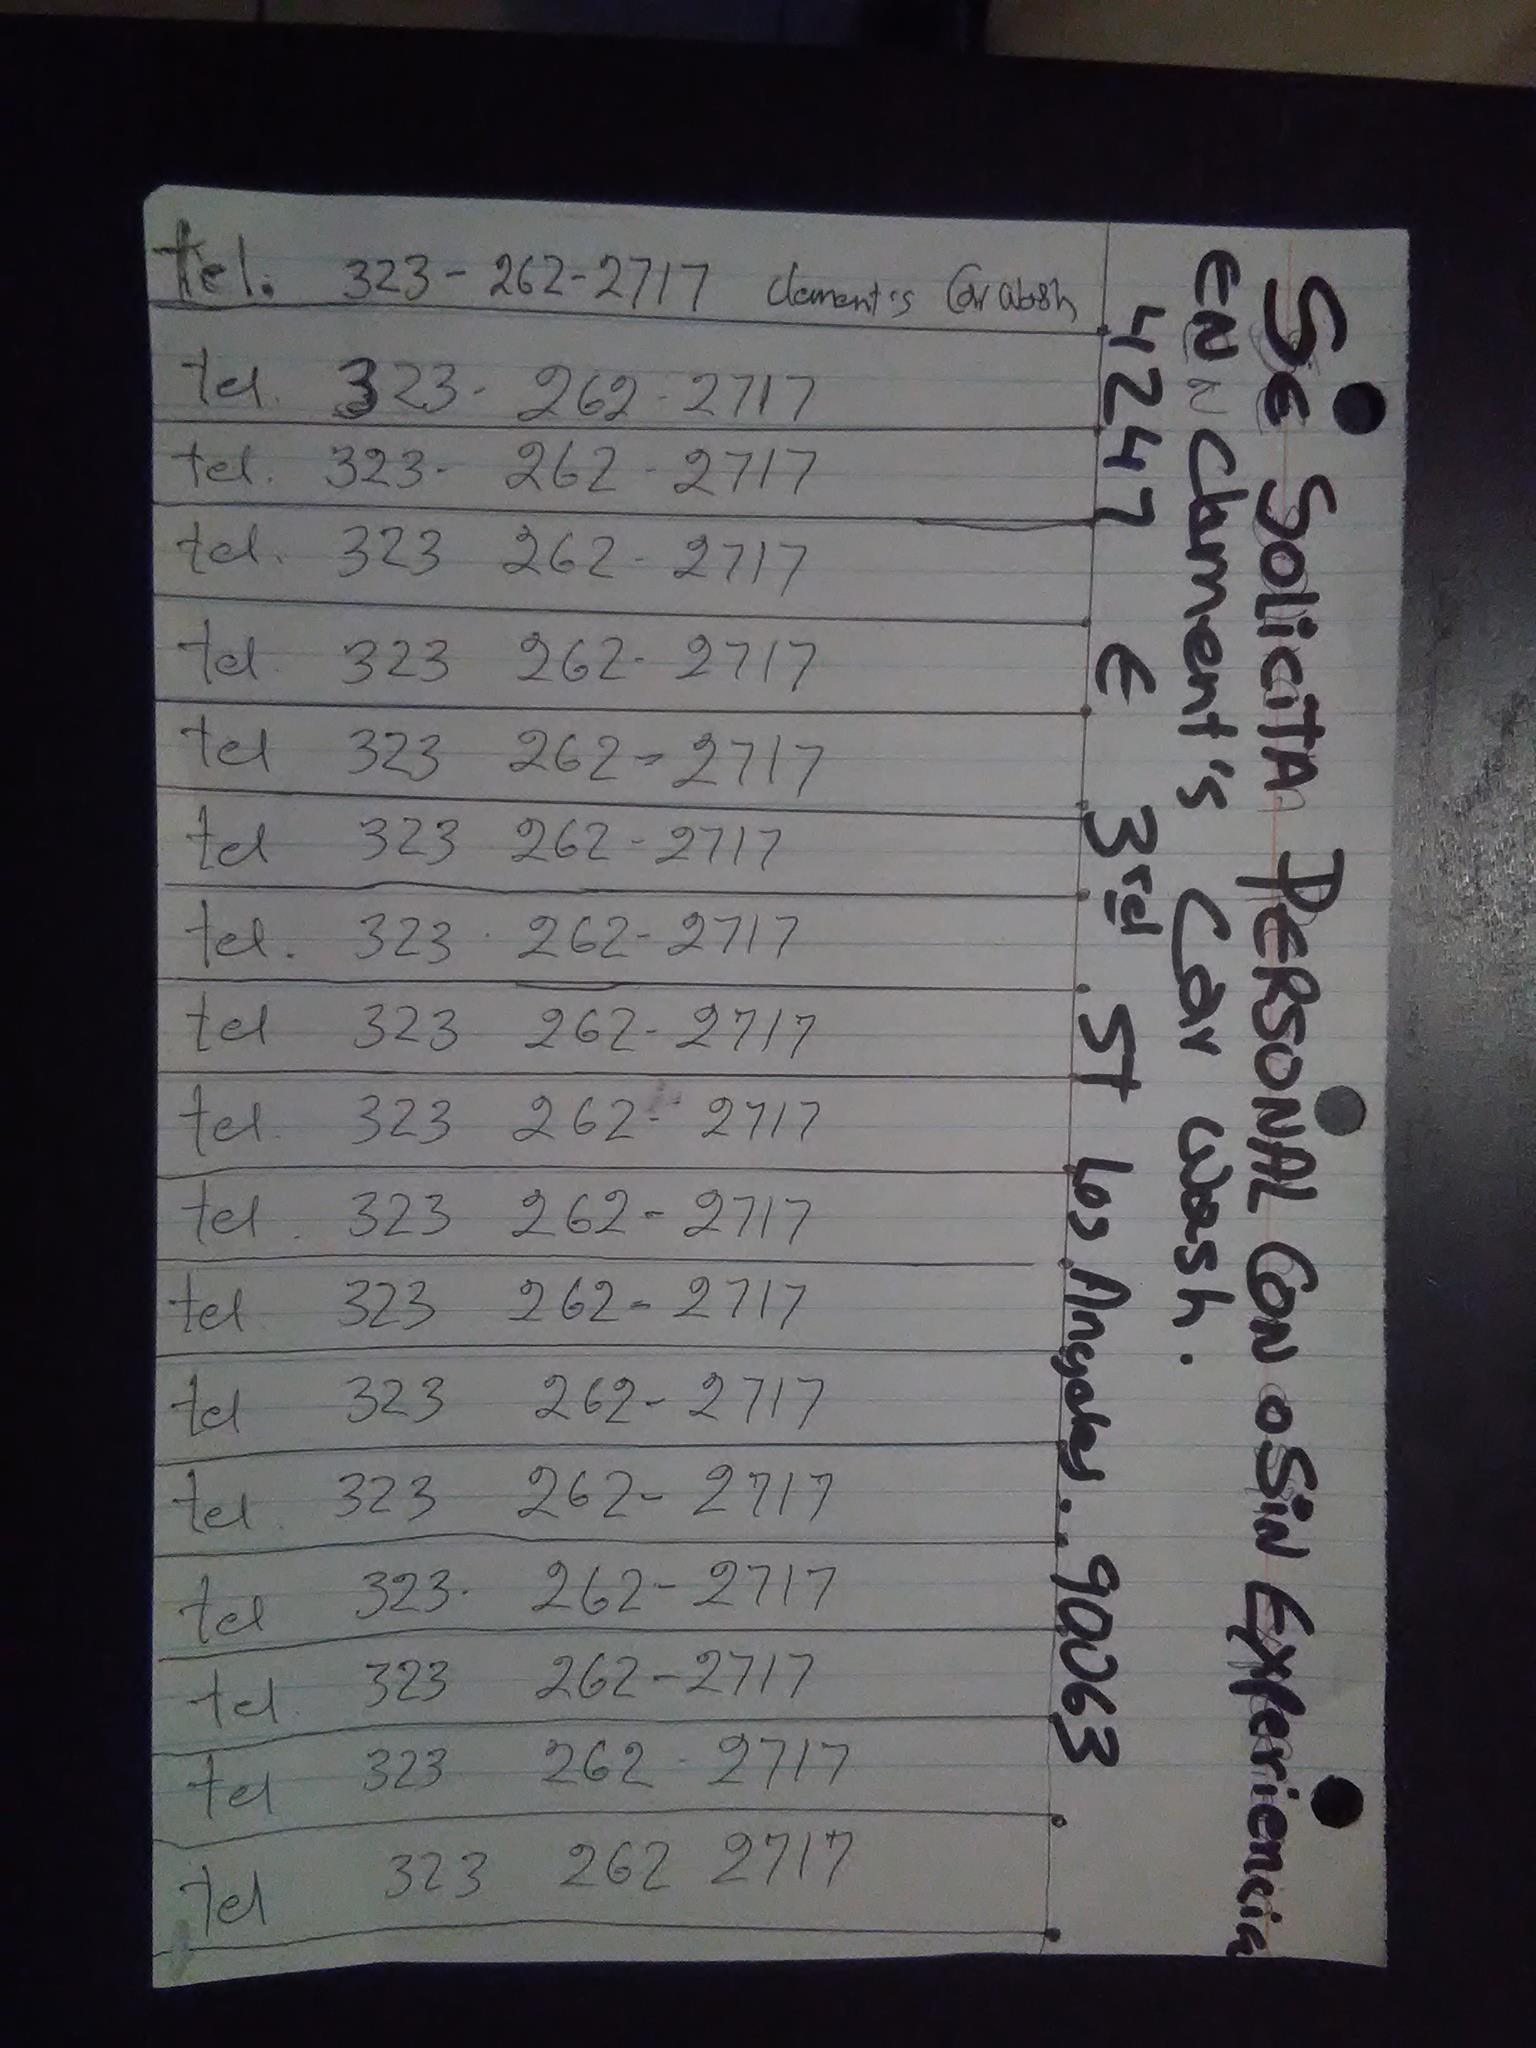 Se Solicita PERSONAL CON o Sin Experiencia
EN Clement's Car Wash.
4247 E 3rd. ST Los Angeles.. 90063
tel. 323-262-2717 Clement's Car Wash
tel. 323- 262-2717
tel. 323- 262-2717
tel. 323 262-2717
tel. 323 262-2717
tel 323 262-2717
tel 323 262-2717
tel. 323 262-2717
tel 323 262-2717
tel. 323 262-2717
tel. 323 262-2717
tel 323 262-2717
tel 323 262-2717
tel. 323 262-2717
tel 323. 262-2717
tel. 323 262-2717
tel 323 262-2717
tel 323 262 2717